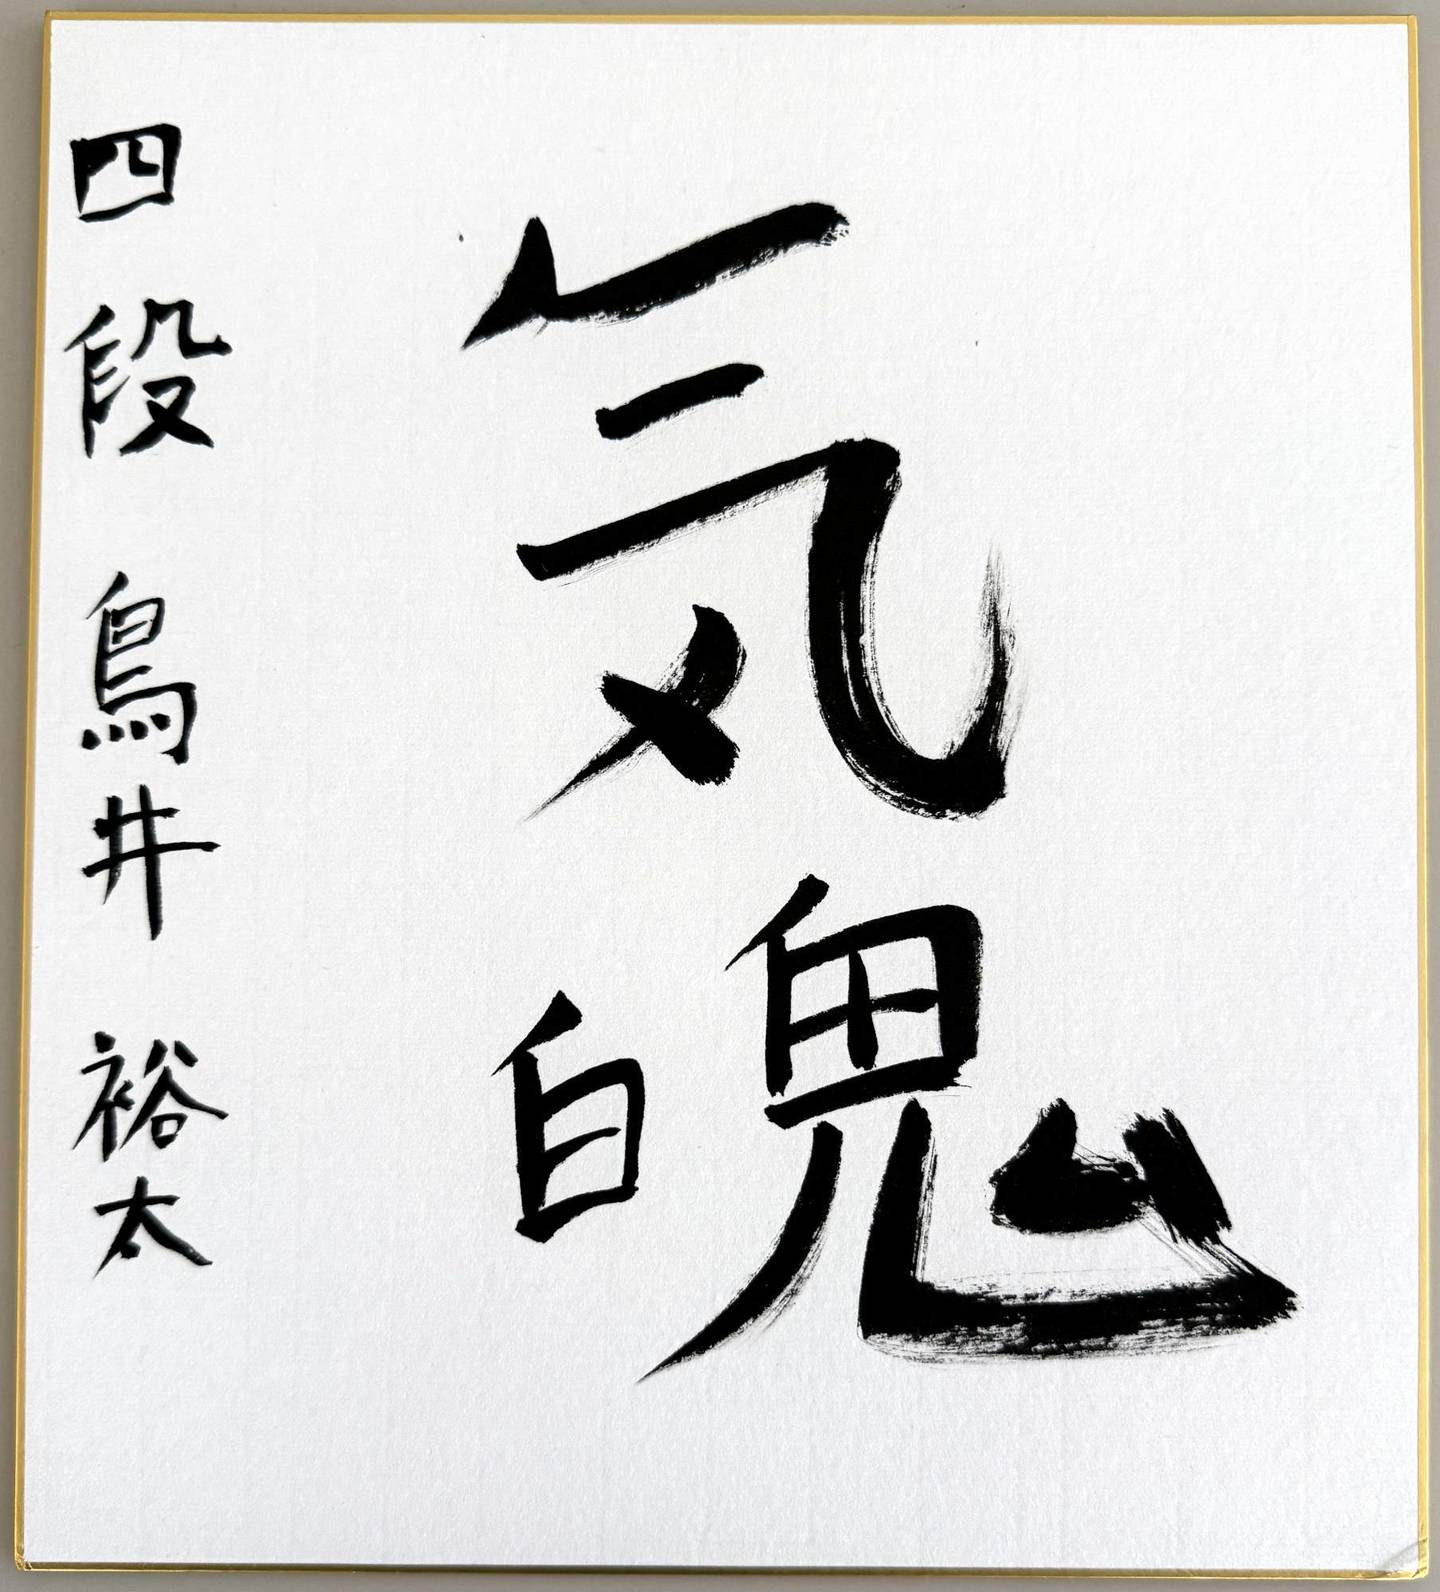 気魄
四段 鳥井 裕太